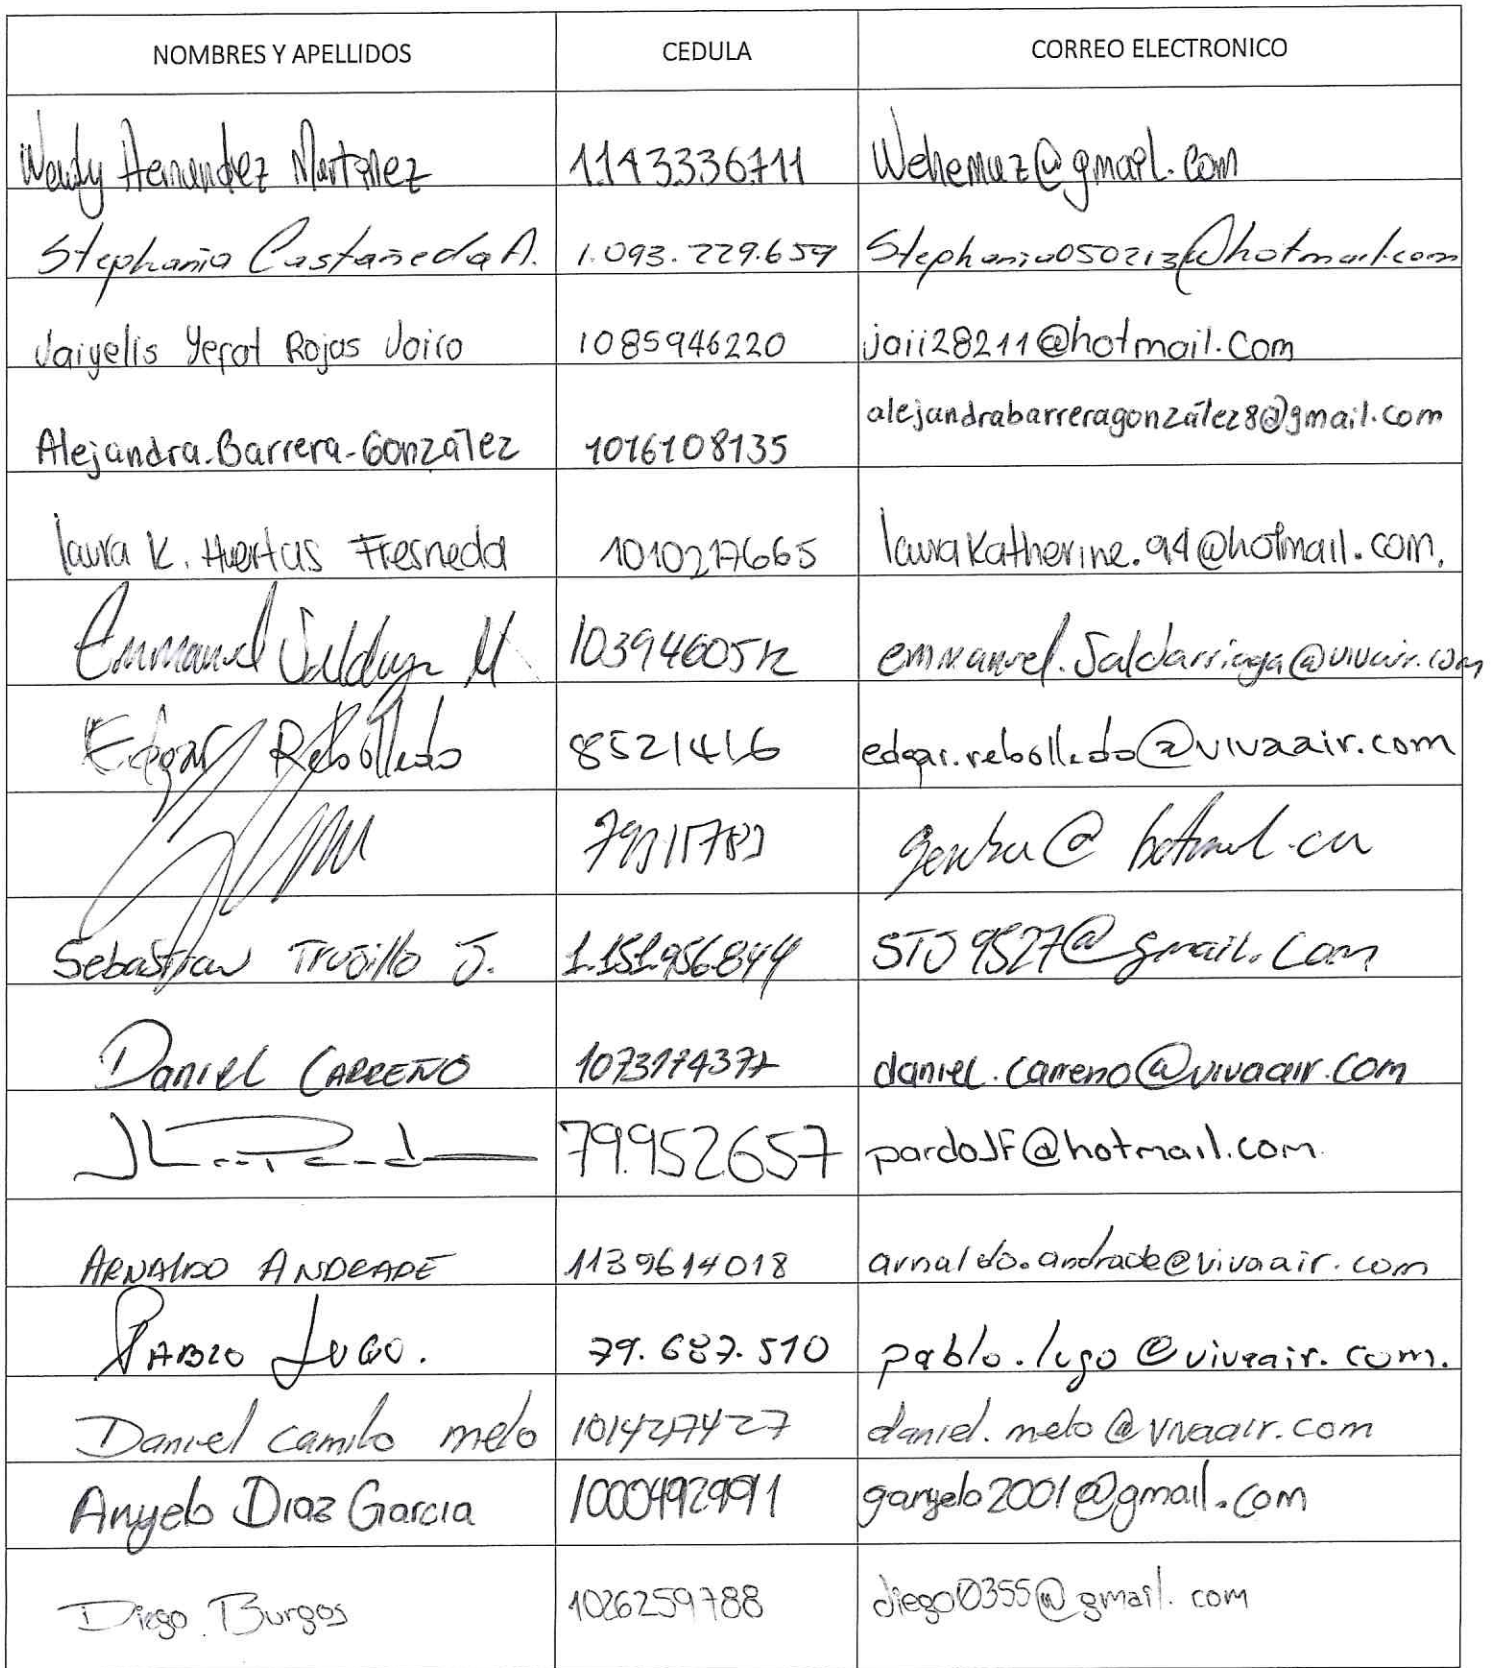 NOMBRES Y APELLIDOS CEDULA CORREO ELECTRONICO
Wendy Hernandez Martinez 1.143.336.711 Wehemuz@gmail.com
Stephania Castañeda A. 1.093.229.659 Stephania050213@hotmail.com
Jaiyelis Yerot Rojas Joiro 1085946220 jaii28211@hotmail.com
Alejandra Barrera González 1016108135 alejandrabarreragonzález8@gmail.com
laura K. Huertas Fresneda 1010217665 laurakatherine.94@hotmail.com.
Emmanuel M emmanuel.Saldarriaga@vivair.com
Edgar Rebolledo 8521416 edgar.rebolledo@vivaair.com
Sebastian Trujillo J. 1.151.956844 STJ9527@gmail.com
Daniel CARREÑO daniel.carreno@vivaair.com
79.952657 pardoJF@hotmail.com
ARNALDO ANDRADE 1139614018 arnaldo.andrade@vivaair.com
PABLO LUGO. 79.687.510 pablo.lugo@vivaair.com.
Daniel camilo melo 1014274427 daniel.melo@vivaair.com
Angelo Diaz Garcia 1000492991 gangelo2001@gmail.com
Diego Burgos 1026259788 diego0355@gmail.com